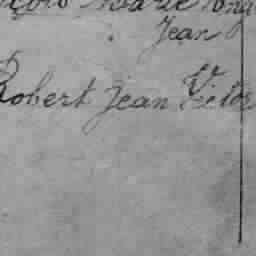 Marie
Jean
Robert Jean Victor